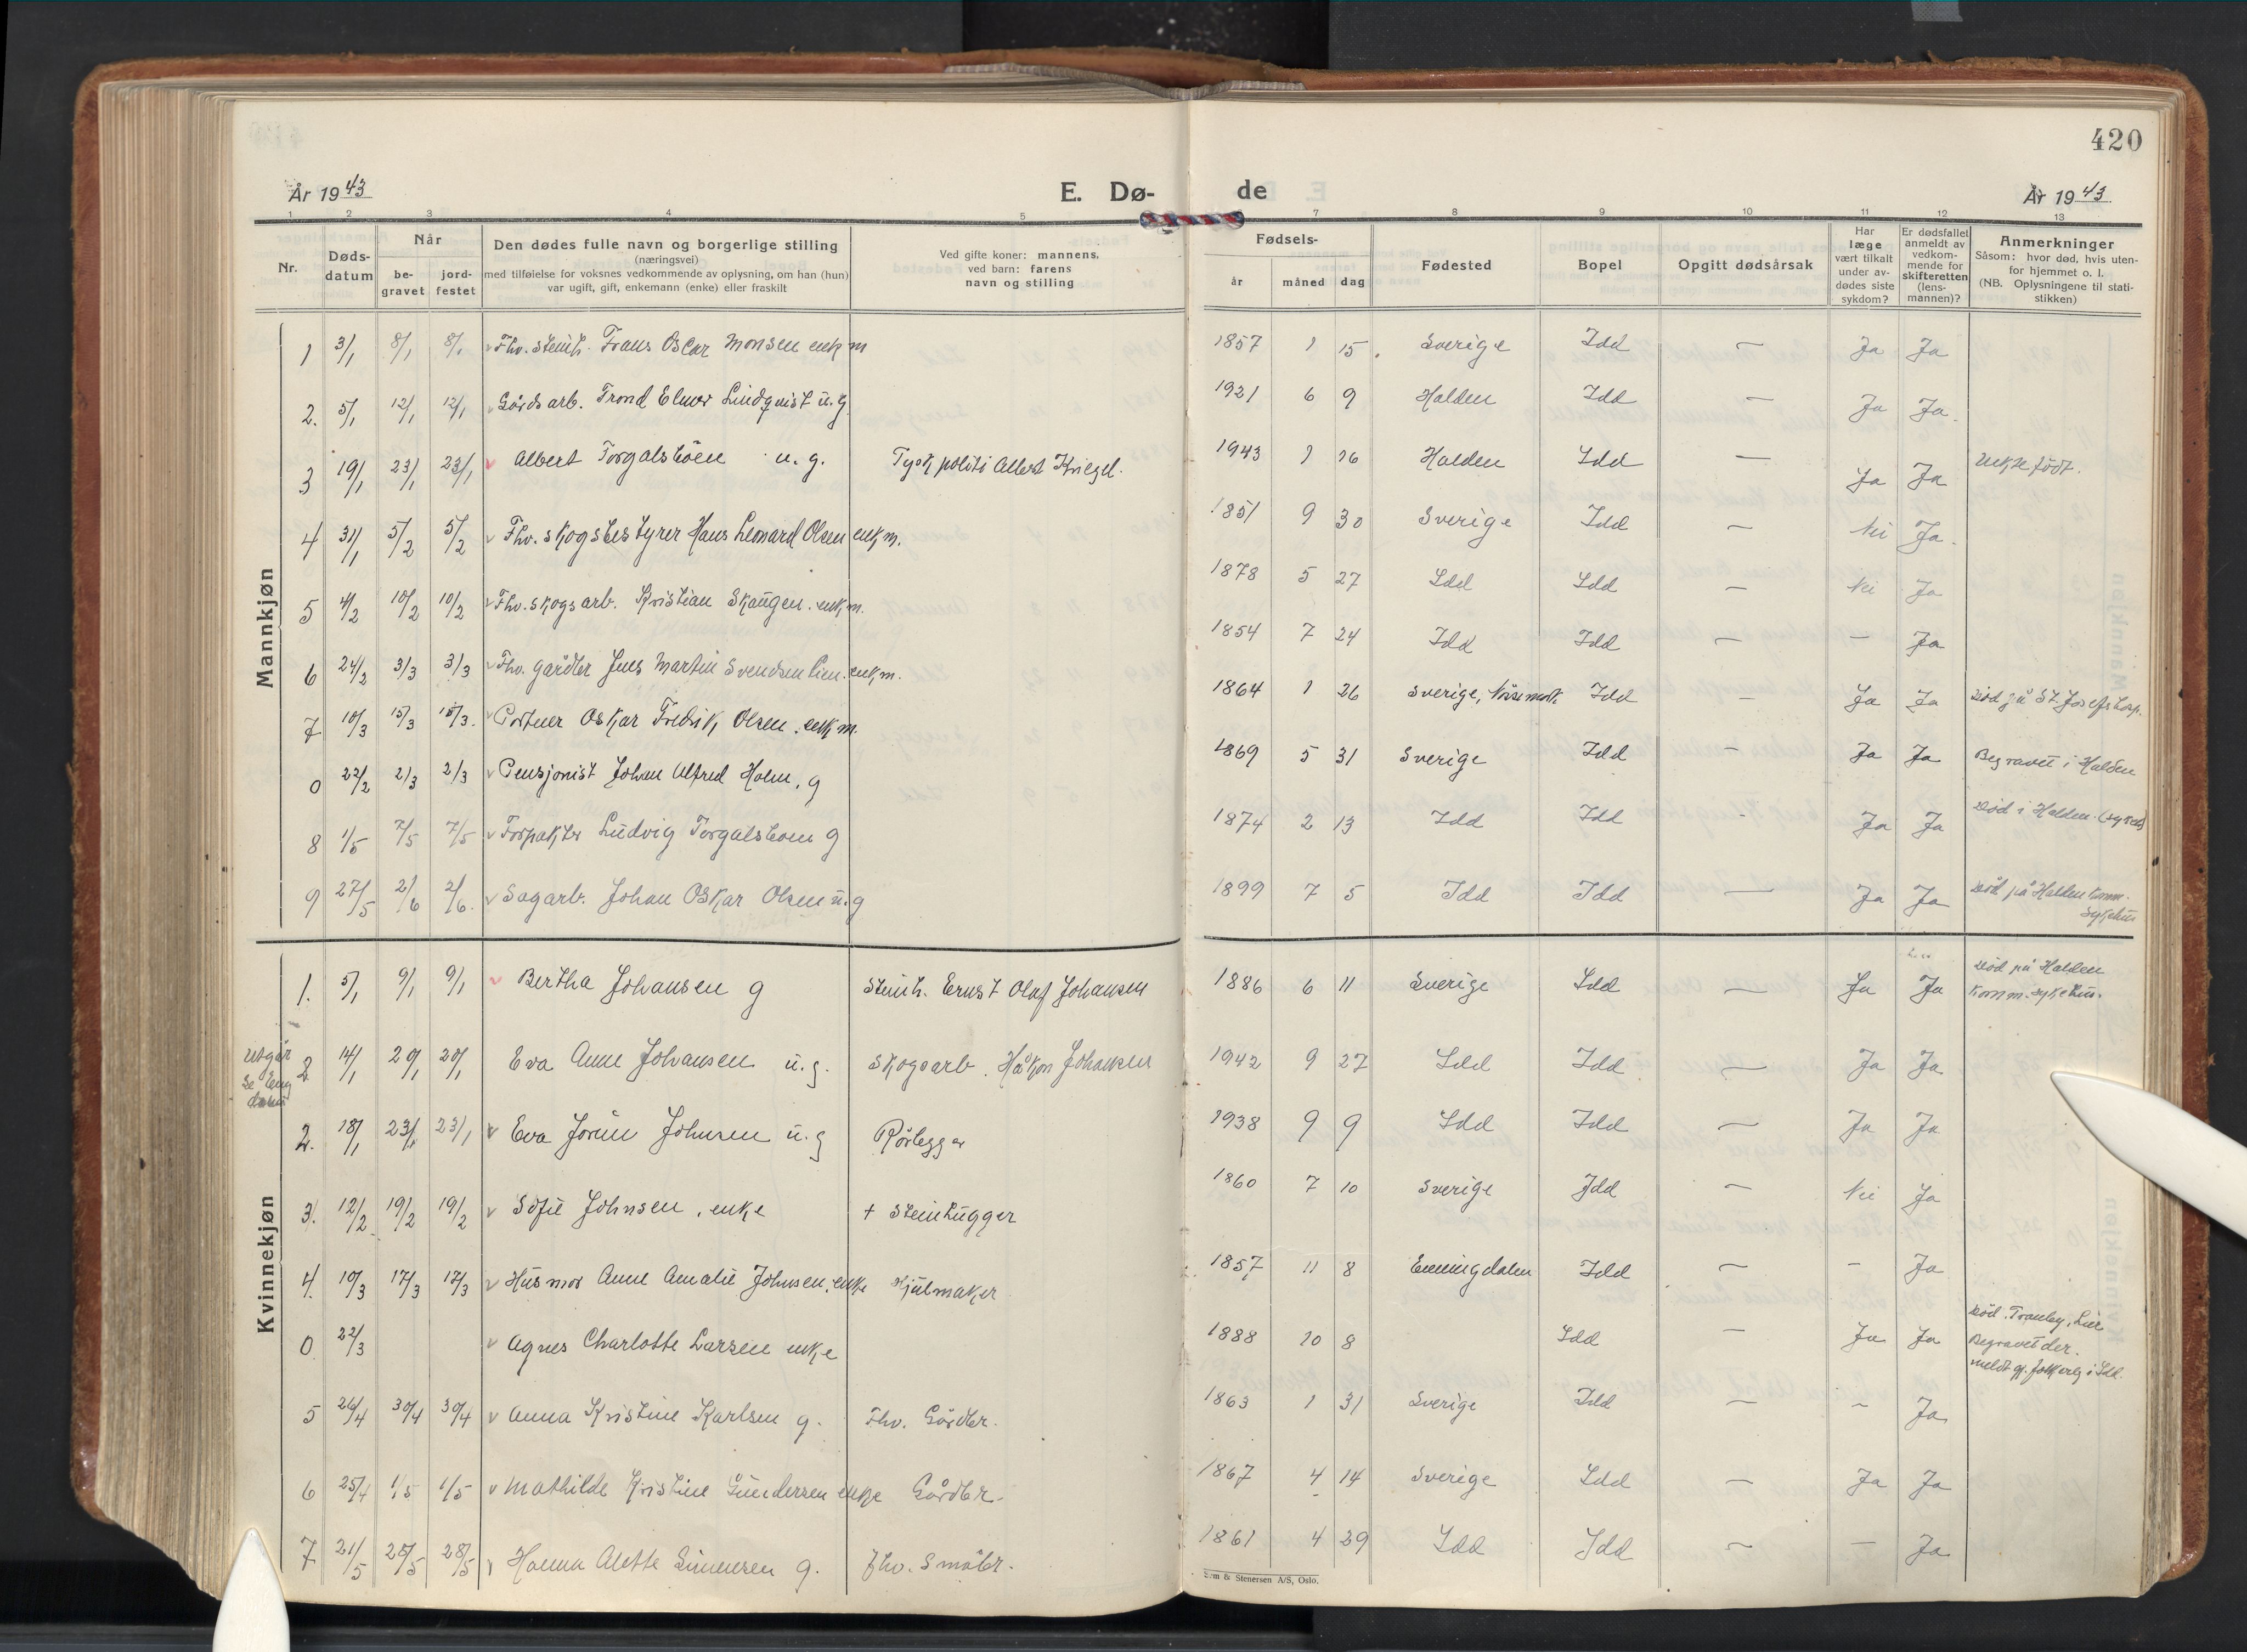 420
År 1943
E. Dø-
de
År 1943
1 2 3 4 5 7 8 9 10 11 12 13
Nr.
Døds-
datum
Når
be-
gravet
jord-
festet
Den dødes fulle navn og borgerlige stilling
(næringsvei)
med tilføielse for voksnes vedkommende av oplysning, om han (hun)
var ugift, gift, enkemann (enke) eller fraskilt
Ved gifte koner: mannens,
ved barn: farens
navn og stilling
Fødsels-
år
måned
dag
Fødested
Bopel
Opgitt dødsårsak
Har
læge
vært tilkalt
under av-
dødes siste
sykdom?
Er dødsfallet
anmeldt av
vedkom-
mende for
skifteretten
(lens-
mannen)?
Anmerkninger
Såsom: hvor død, hvis uten-
for hjemmet o. l.
(NB. Oplysningene til stati-
stikken)
Mannkjøn
1 3/1 8/1 8/1 Fhv. steinh. Frans Oscar Monsen enkm 1857 1 15 Sverige Idd — Ja Ja
2. 5/1 12/1 12/1 Gårdsarb. Trond Elmer Lindqvist u.g 1921 6 9 Halden Idd — Ja Ja.
3 19/1 23/1 23/1 Albert Torgalsbøen u.g. Tysk politi Albert Kriegel. 1943 1 16 Halden Idd — Ja Ja Uekte født.
4 31/1 5/2 5/2 Fhv. skogsbestyrer Hans Leonard Olsen enkm. 1851 9 30 Sverige Idd — Nei Ja.
5 4/2 10/2 10/2 Fhv. skogsarb. Kristian Skaugen. enkm. 1878 5 27 Idd Idd — Nei Ja
6 24/2 3/3 3/3 Fhv. gårdbr Jens Martin Svendsen Lien. enkm. 1854 7 24 Idd Idd — — Ja
7 10/3 15/3 15/3. Portner Oskar Fredrik Olsen. enkm. 1864 1 26 Sverige, Idd — Ja Ja Død på St. Josefs hosp.
0 22/2 2/3 2/3 Pensjonist Johan Alfred Holm, g 1869 5 31 Sverige Idd — Ja Ja Begravet i Halden
8 1/5 7/5 7/5 Forpakter Ludvig Torgalsboen g 1874 2 13 Idd Idd - Ja Ja Død i Halden
9 27/5 2/6 2/6. Sagarb. Johan Oskar Olsen u.g 1899 7 5 Idd Idd — Ja Ja Død på Halden komm.
sykehus
Kvinnekjøn
1. 5/1 9/1 9/1 Bertha Johansen g Steinh. Ernst Olaf Johansen 1886 6 11 Sverige Idd — Ja Ja Død på Halden
komm. sykehus.
Utgår
se
2 14/1 20/1 20/1 Eva Anne Johansen u.g. Skogsarb. Håkon Johansen 1942 9 27 Idd Idd — Ja Ja
2. 18/1 23/1 23/1 Eva Jorun Johnsen u.g Rørlegger 1938 9 9 Idd Idd — Ja Ja
3. 12/2 19/2 19/2 Sofie Johnsen, enke + Steinhugger 1860 7 10 Sverige Idd — Nei Ja
4. 10/3 17/3 17/3 Husmor Anne Amalie Johnsen, enke Hjulmaker 1857 11 8 Enningdalen Idd — — Ja
0 22/3 Agnes Charlotte Larsen enke 1888 10 8 Idd — Ja Ja Død Tranby, Lier
Begravet der.
meldt gj. folkereg i Idd.
5 26/4 30/4 30/4 Anna Kristine Karlsen g. Fhv. Gårdbr. 1863 1 31 Sverige Idd — – Ja
6 25/4 1/5 1/5 Mathilde Kristine Gundersen enke Gårdbr. 1867 4 14 Sverige Idd — Ja Ja
7 21/5 28/5 28/5 Hanna Alette Simensen g. Fhv. Småbr. 1861 4 29 Idd Idd — — Ja
& Stenersen A/S, Oslo.